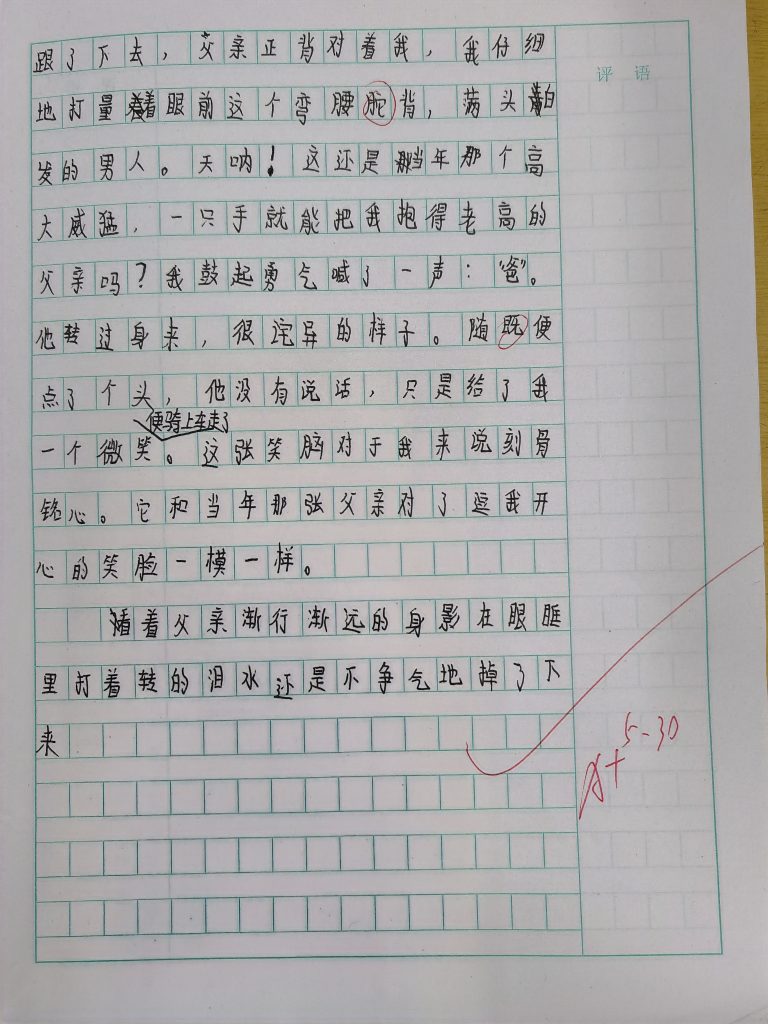 跟了下去，父亲正背对着我，我仔细
评语
地打量着眼前这个弯腰驼背，满头白
发的男人。天呐！这还是当年那个高
大威猛，一只手就能把我抱得老高的
父亲吗？我鼓起勇气喊了一声：“爸”。
他转过身来，很诧异的样子。随既便
点了个头，他没有说话，只是给了我
便骑上车走了
一个微笑。这张笑脸对于我来说刻骨
铭心。它和当年那张父亲对了逗我开
心的笑脸一模一样。
看着父亲渐行渐远的身影在眼眶
里打着转的泪水还是不争气地掉了下
来
A+ 5-30